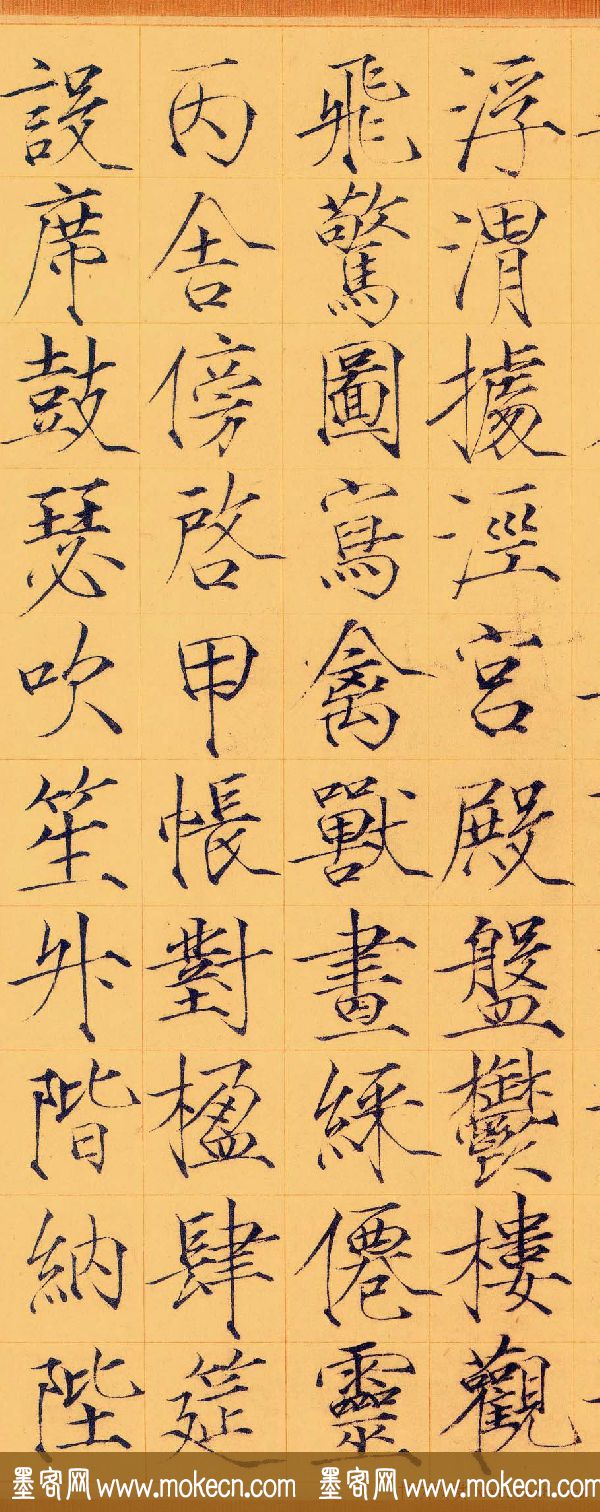 浮渭據涇宮殿盤鬱樓觀
飛驚圖寫禽獸畫綵僊靈
丙舍傍啓甲帳對楹肆筵
設席鼓瑟吹笙升階納陛
墨客网 www.mokecn.com 墨客网 www.mokecn.com